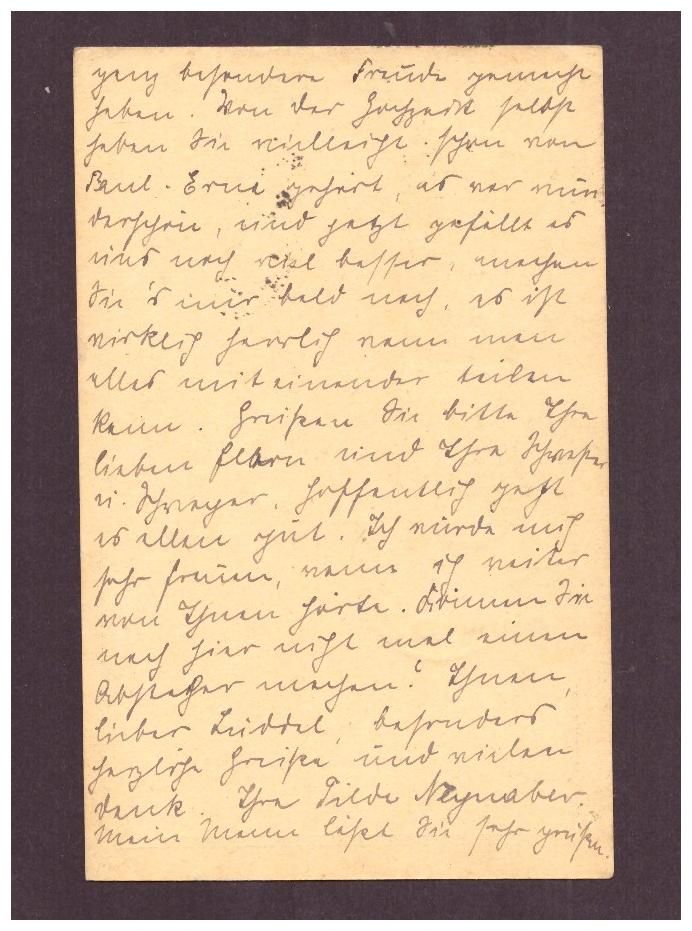 ganz besondere Freude gemacht
haben. Von der Hochzeit selbst
haben Sie vielleicht schon von
Paul-Erna gehört, es war wun
derschön, und jetzt gefällt es
uns noch viel besser, machen
Sie's nur bald nach, es ist
wirklich herrlich wenn man
alles miteinander teilen
kann. Grüßen Sie bitte Ihre
lieben Eltern und Ihre Schwester
u. Schwager, hoffentlich geht
es allen gut. Ich würde mich
sehr freuen, wenn ich weiter
von Ihnen hörte. Können Sie
nach hier nicht mal einen
Abstecher machen? Ihnen,
lieber Luddel, besonders
herzliche Grüße und vielen
Dank. Ihre Tilde Neynaber.
Mein Mann läßt Sie sehr grüßen.